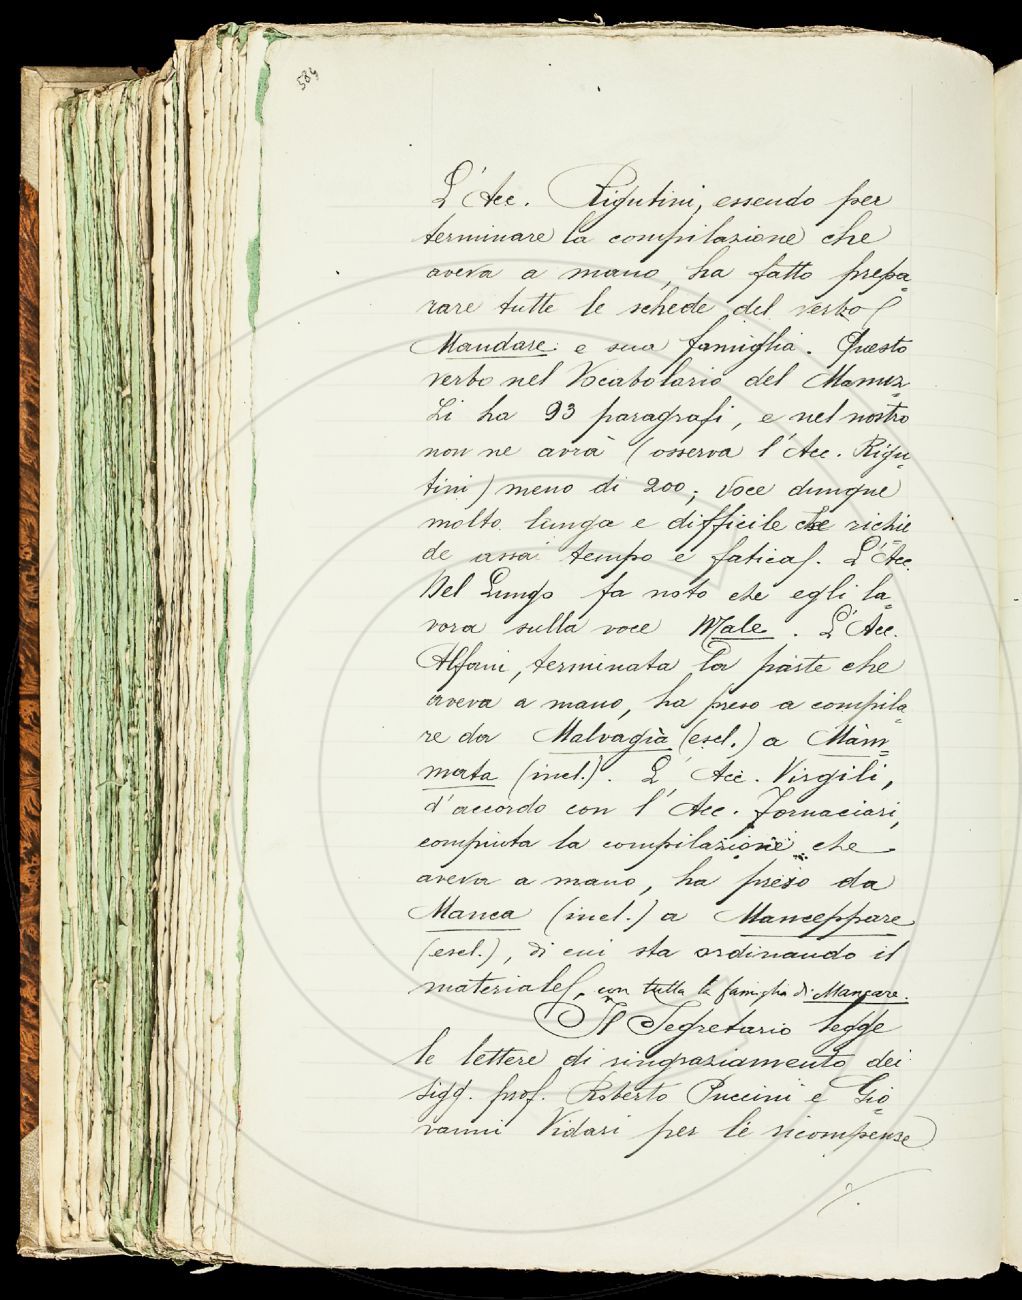 584
L'Acc. Rigutini, essendo per
terminare la compilazione che
aveva a mano, ha fatto prepa=
rare tutte le schede del verbo
Mandare e sua famiglia. Questo
verbo nel Vocabolario del Manuz=
zi ha 93 paragrafi, e nel nostro
non ne avrà (osserva l'Acc. Rigu=
tini) meno di 200; voce dunque
molto lunga e difficile che richie=
de assai tempo e fatica. L'Acc.
Del Lungo fa noto che egli la=
vora sulla voce Male. L'Acc.
Alfani, terminata la parte che
aveva a mano, ha preso a compila=
re da Malvagìa (escl.) a Mam=
mata (incl.). L'Acc. Virgili,
d'accordo con l'Acc. Fornaciari,
compiuta la compilazione che
aveva a mano, ha preso da
Manca (incl.) a Manceppare
(escl.), di cui sta ordinando il
materiale, con tutta la famiglia di Mancare.
Il Segretario legge
le lettere di ringraziamento dei
Sigg. prof. Roberto Puccini e Gio=
vanni Vidari per le ricompense
./.